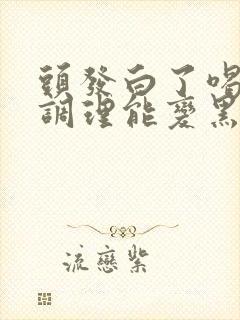 頭發白了喝
調理能變黑
流戀紫